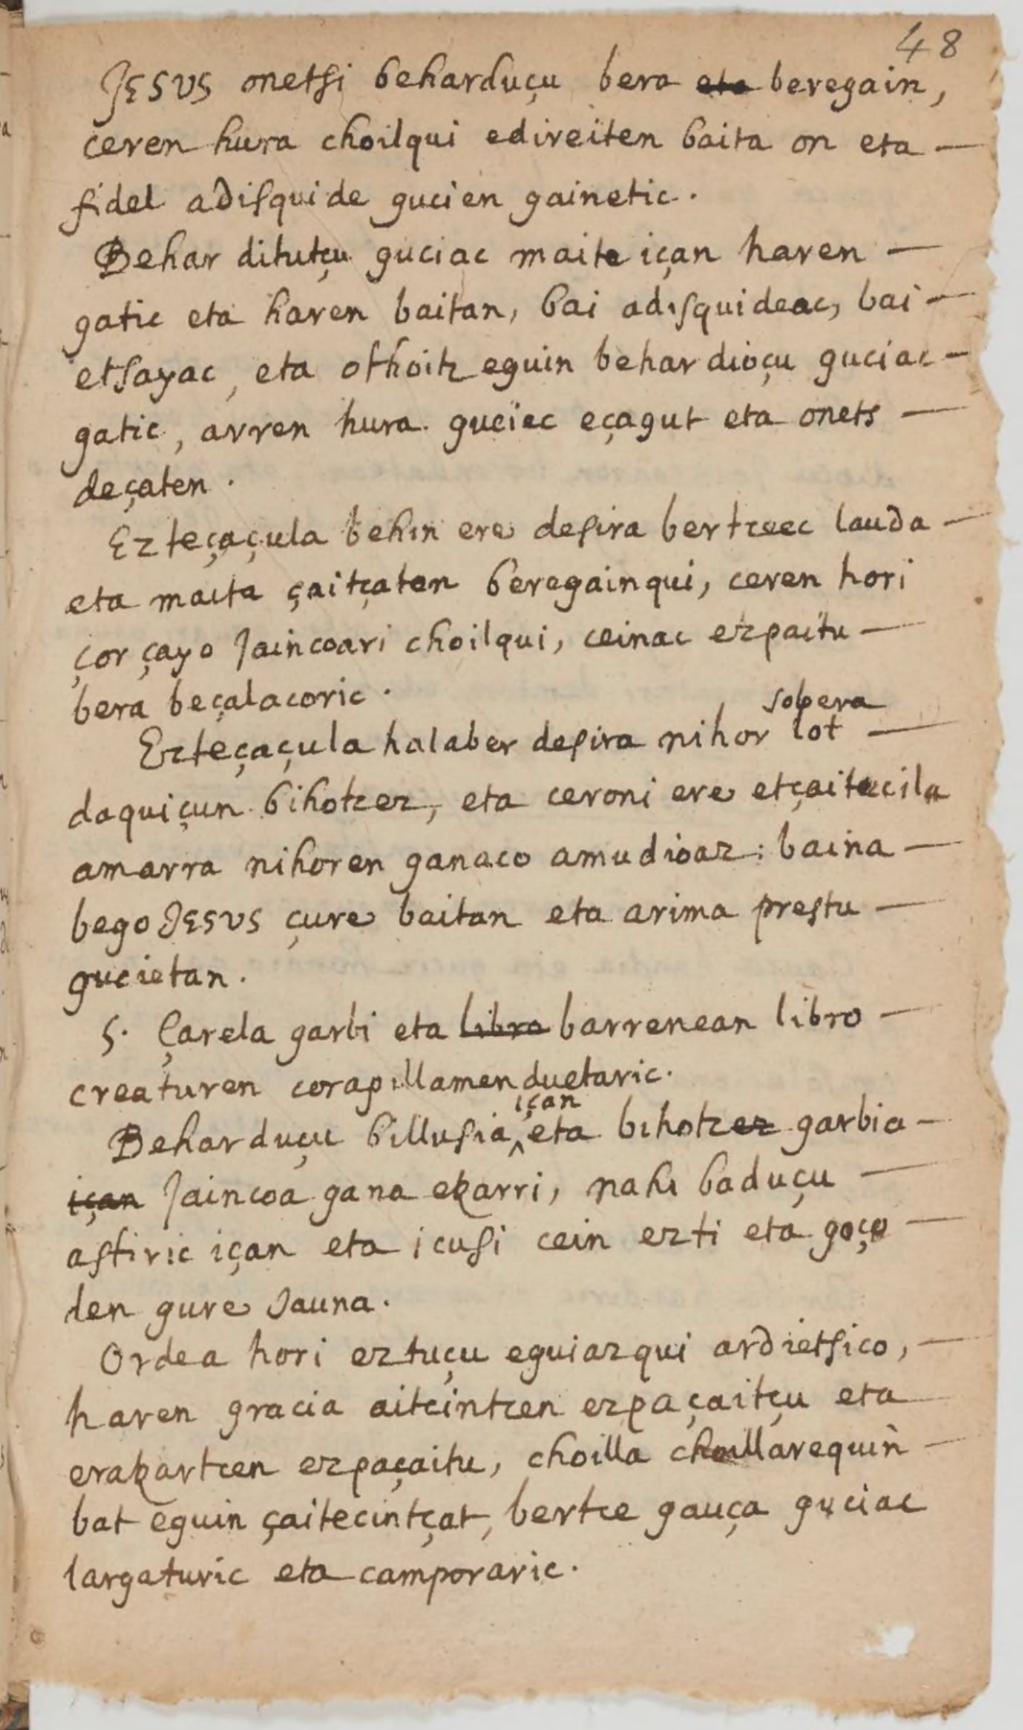 48
JESVS onetsi beharduçu bera eta beregain,
ceren hura choilqui edireïten baita on eta —
fidel adisquide gucien gainetic.
Behar ditutçu guciac maite içan haren —
gatic eta haren baitan, bai adisquideac, bai —
etsayac, eta othoitz eguin behardioçu guciac —
gatic, arren hura guciec eçagut eta onets —
deçaten.
Ezteçaçula behin ere desira bertceec lauda —
eta maita çaitçaten beregainqui, ceren hori
çor çayo Jaincoari choilqui, ceinac ezpaitu —
bera beçalacoric.
sobera
Ezteçaçula halaber desira nihor lot —
daquiçun bihotzez, eta ceroni ere etçaitecila
amarra nihoren ganaco amudioaz: baina —
bego JESVS çure baitan eta arima prestu —
gucietan.
5. Çarela garbi eta libro barrenean libro —
creaturen corapillamenduetaric.
içan
Beharduçu billusia ^ eta bihotzez garbia —
içan Jaincoa gana ekarri, nahi baduçu —
astiric içan eta icusi cein ezti eta goço —
den gure Jauna.
Ordea hori eztuçu eguiazqui ardietsico, —
haren gracia aitcintcen ezpaçaitçu eta
erakartcen ezpaçaitu, choilla choillarequin —
bat eguin çaitecintçat, bertce gauça guciac
largaturic eta camporaric.